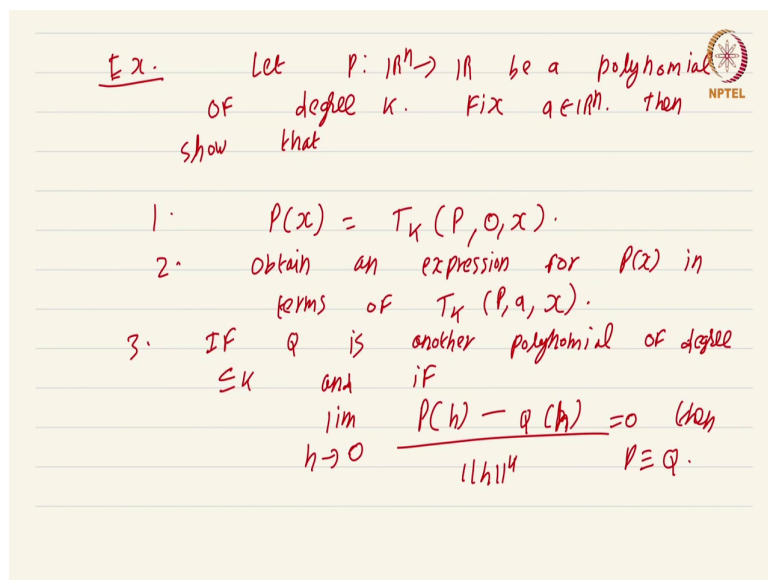 Ex. Let P: ℝⁿ → ℝ be a polynomial
NPTEL
of degree k. Fix a ∈ ℝⁿ. Then
show that
1. P(x) = T_k (P, 0, x).
2. Obtain an expression for P(x) in
terms of T_k (P, a, x).
3. If Q is another polynomial of degree
≤ k and if
lim P(h) − Q(h) = 0 then
h→0 ||h||^k P ≡ Q.